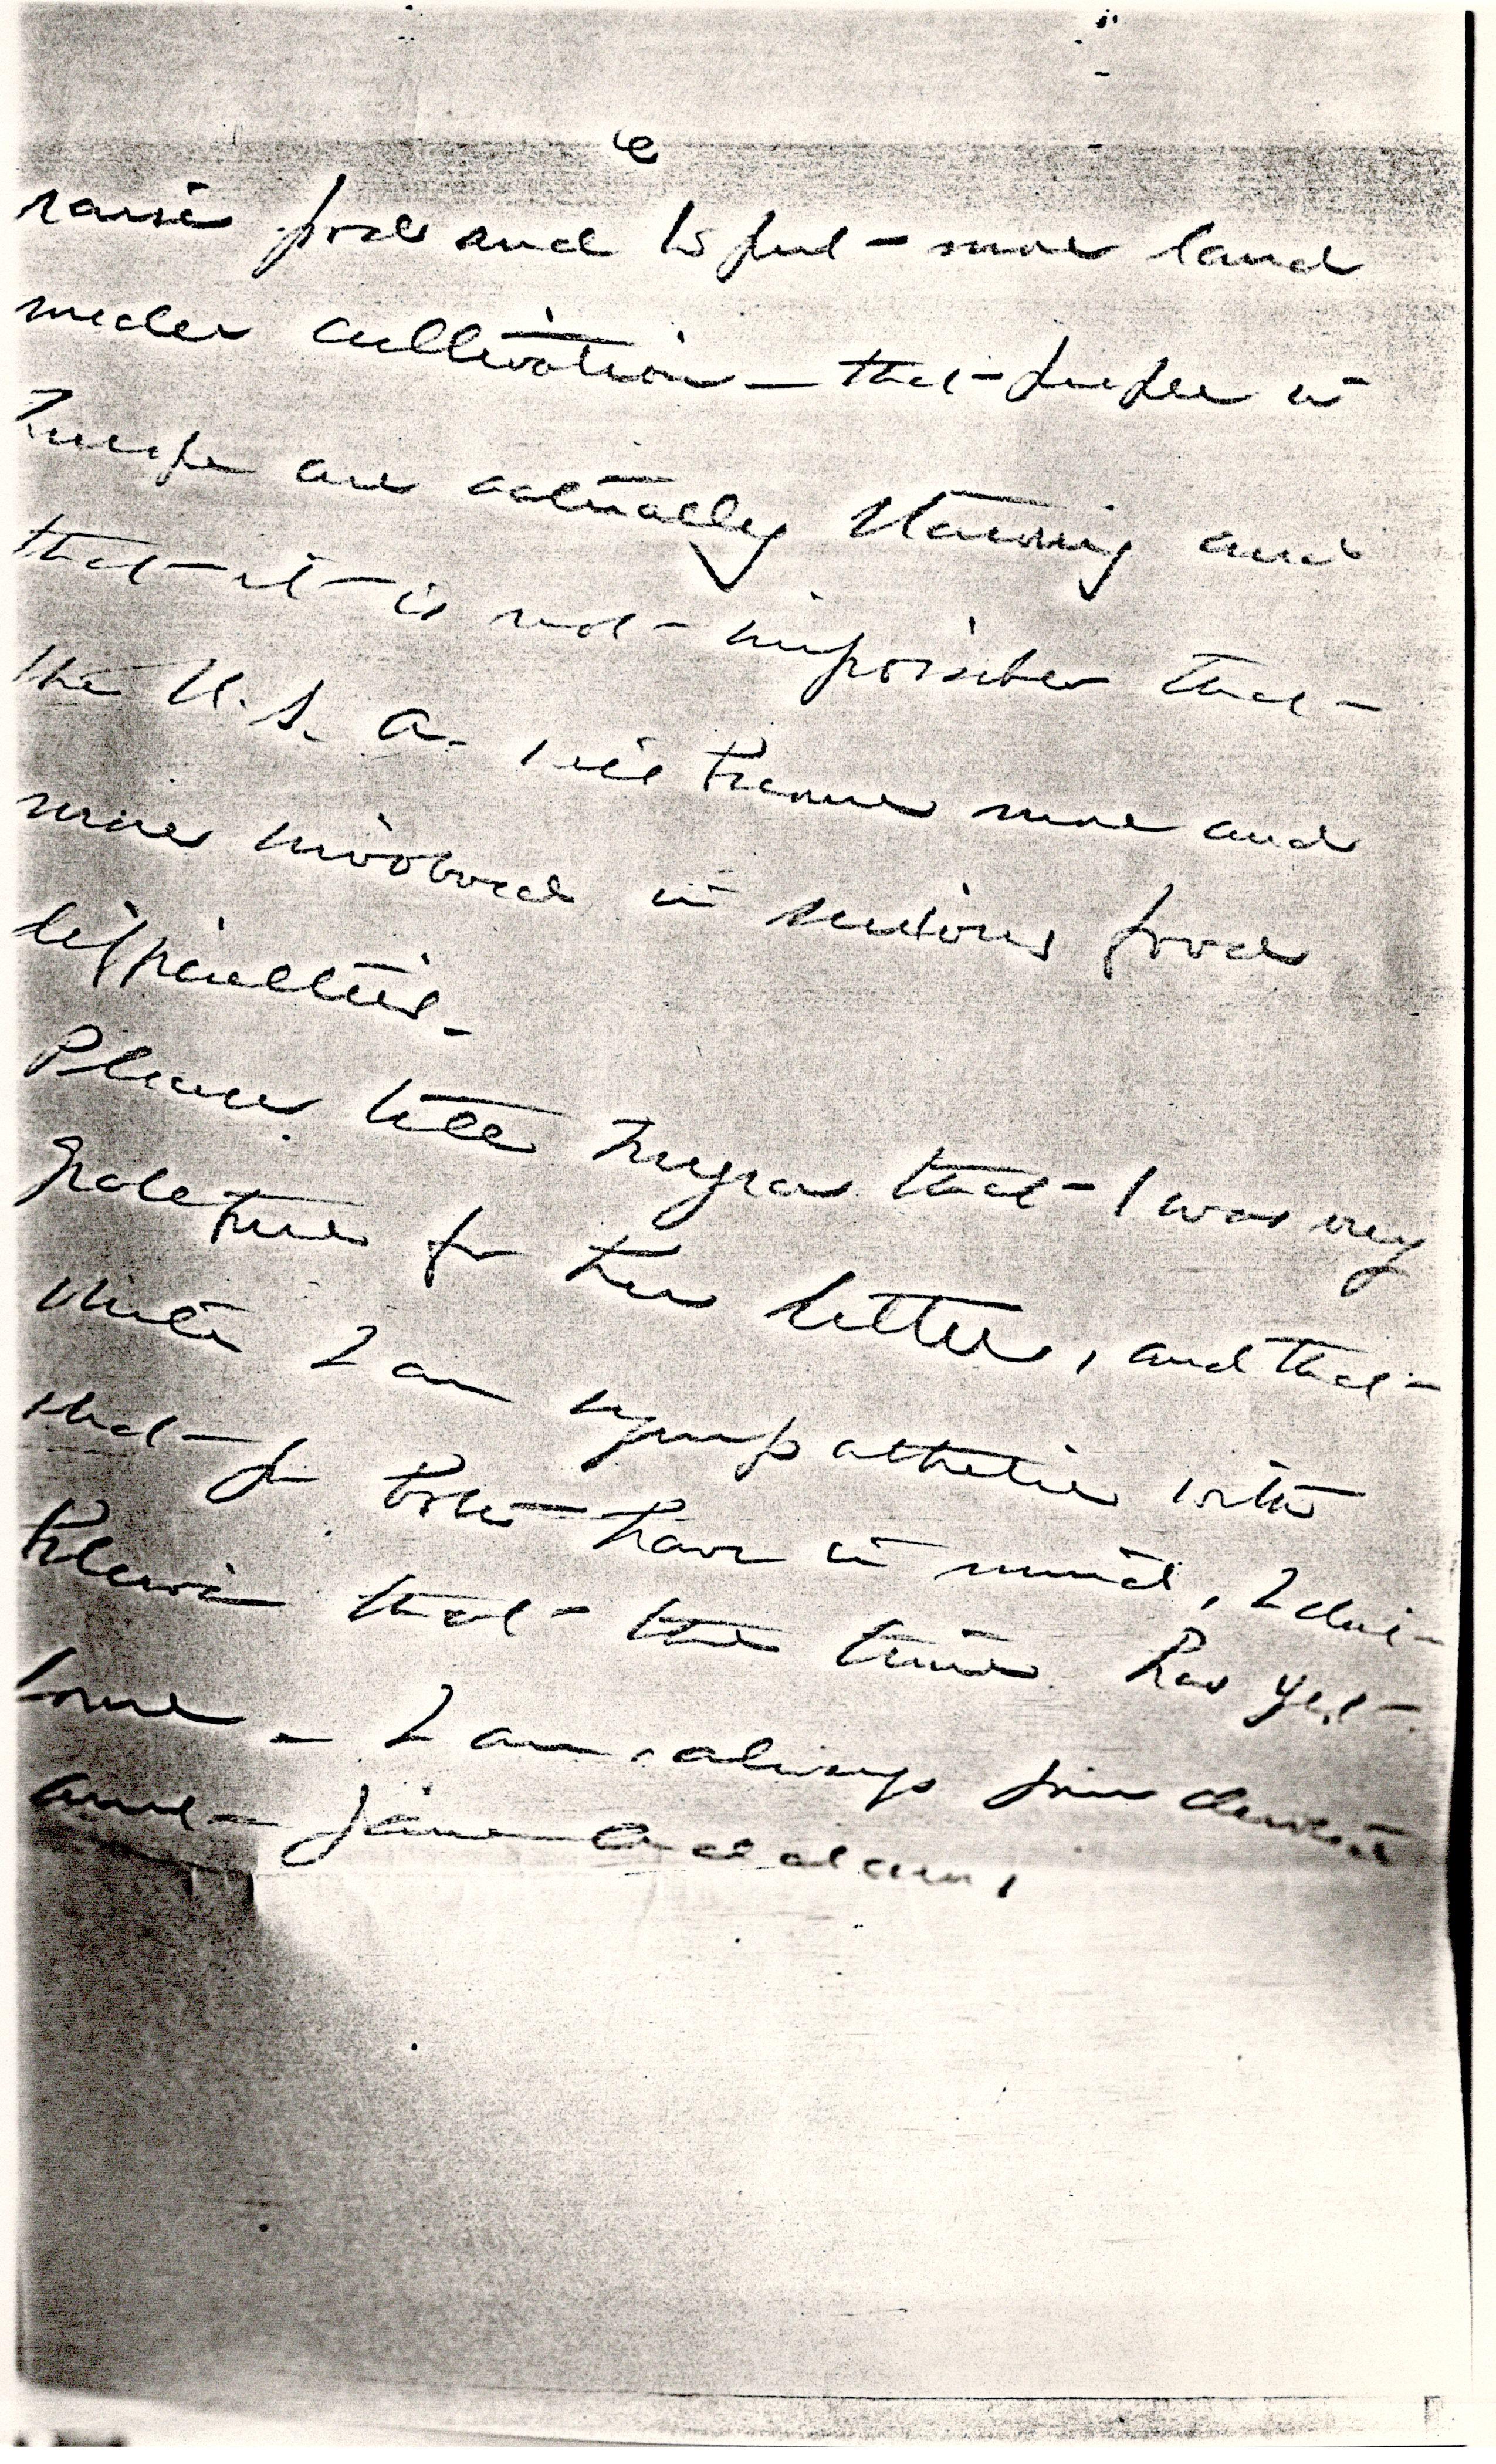 raise food and to put more land
under cultivation – that people in
Europe are actually starving and
that it is not impossible that
the U.S.A. will become more and
more involved in serious food
difficulties.
Please tell that I was very
grateful for the letter, and that
while I am sympathetic with
what you both have in mind, I don't
believe that the time has yet
come – I am always your devoted
aunt – Jane Addams,